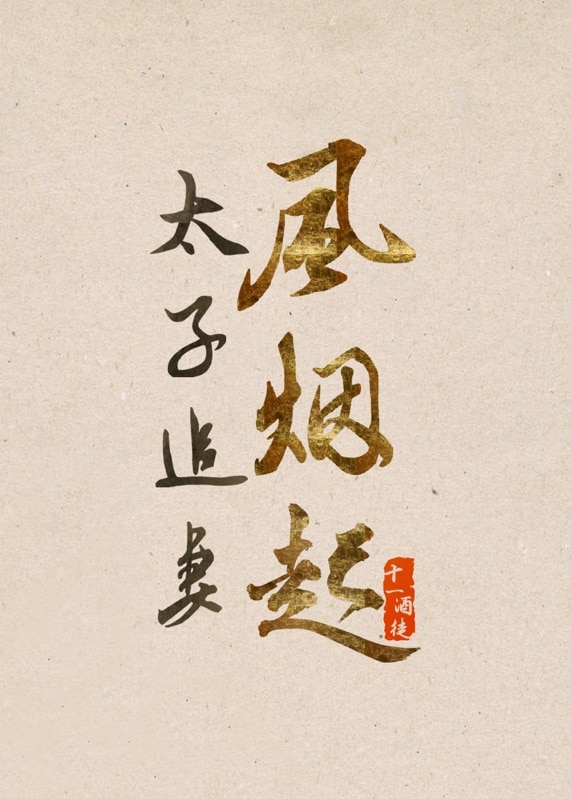 風烟起
太子追妻
十一酒徒